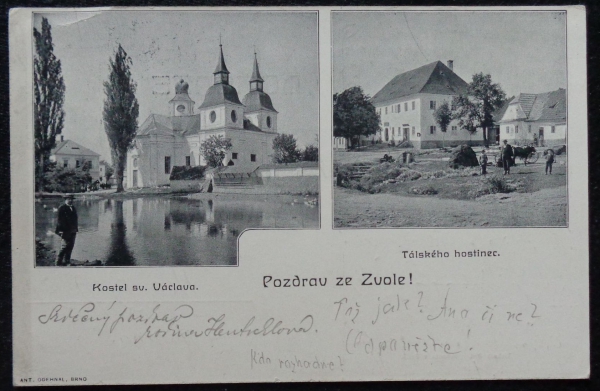 Kostel sv. Václava.
Tálského hostinec.
Pozdrav ze Zvole!
Srdečný pozdrav
rodina
Též jak? Ano či ne?
Odpovězte!
Kdo rozhodne?
ANT. ODEHNAL, BRNO